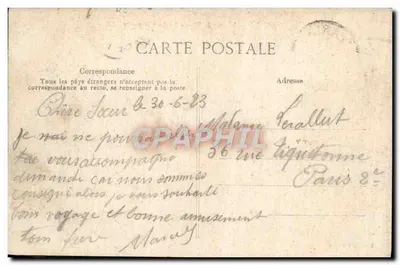 CARTE POSTALE
Correspondance
Tous les pays étrangers n'acceptent pas la
correspondance au recto, se renseigner à la poste
Adresse
Chère Sœur le 30-6-23
je ne
vous accompagne
demande car nous sommes
consigné alors je vous souhaite
bon voyage et bonne amusement
ton frere Marcel
Madame
36 rue Tiquetonne
Paris 2e
CPAPHIL